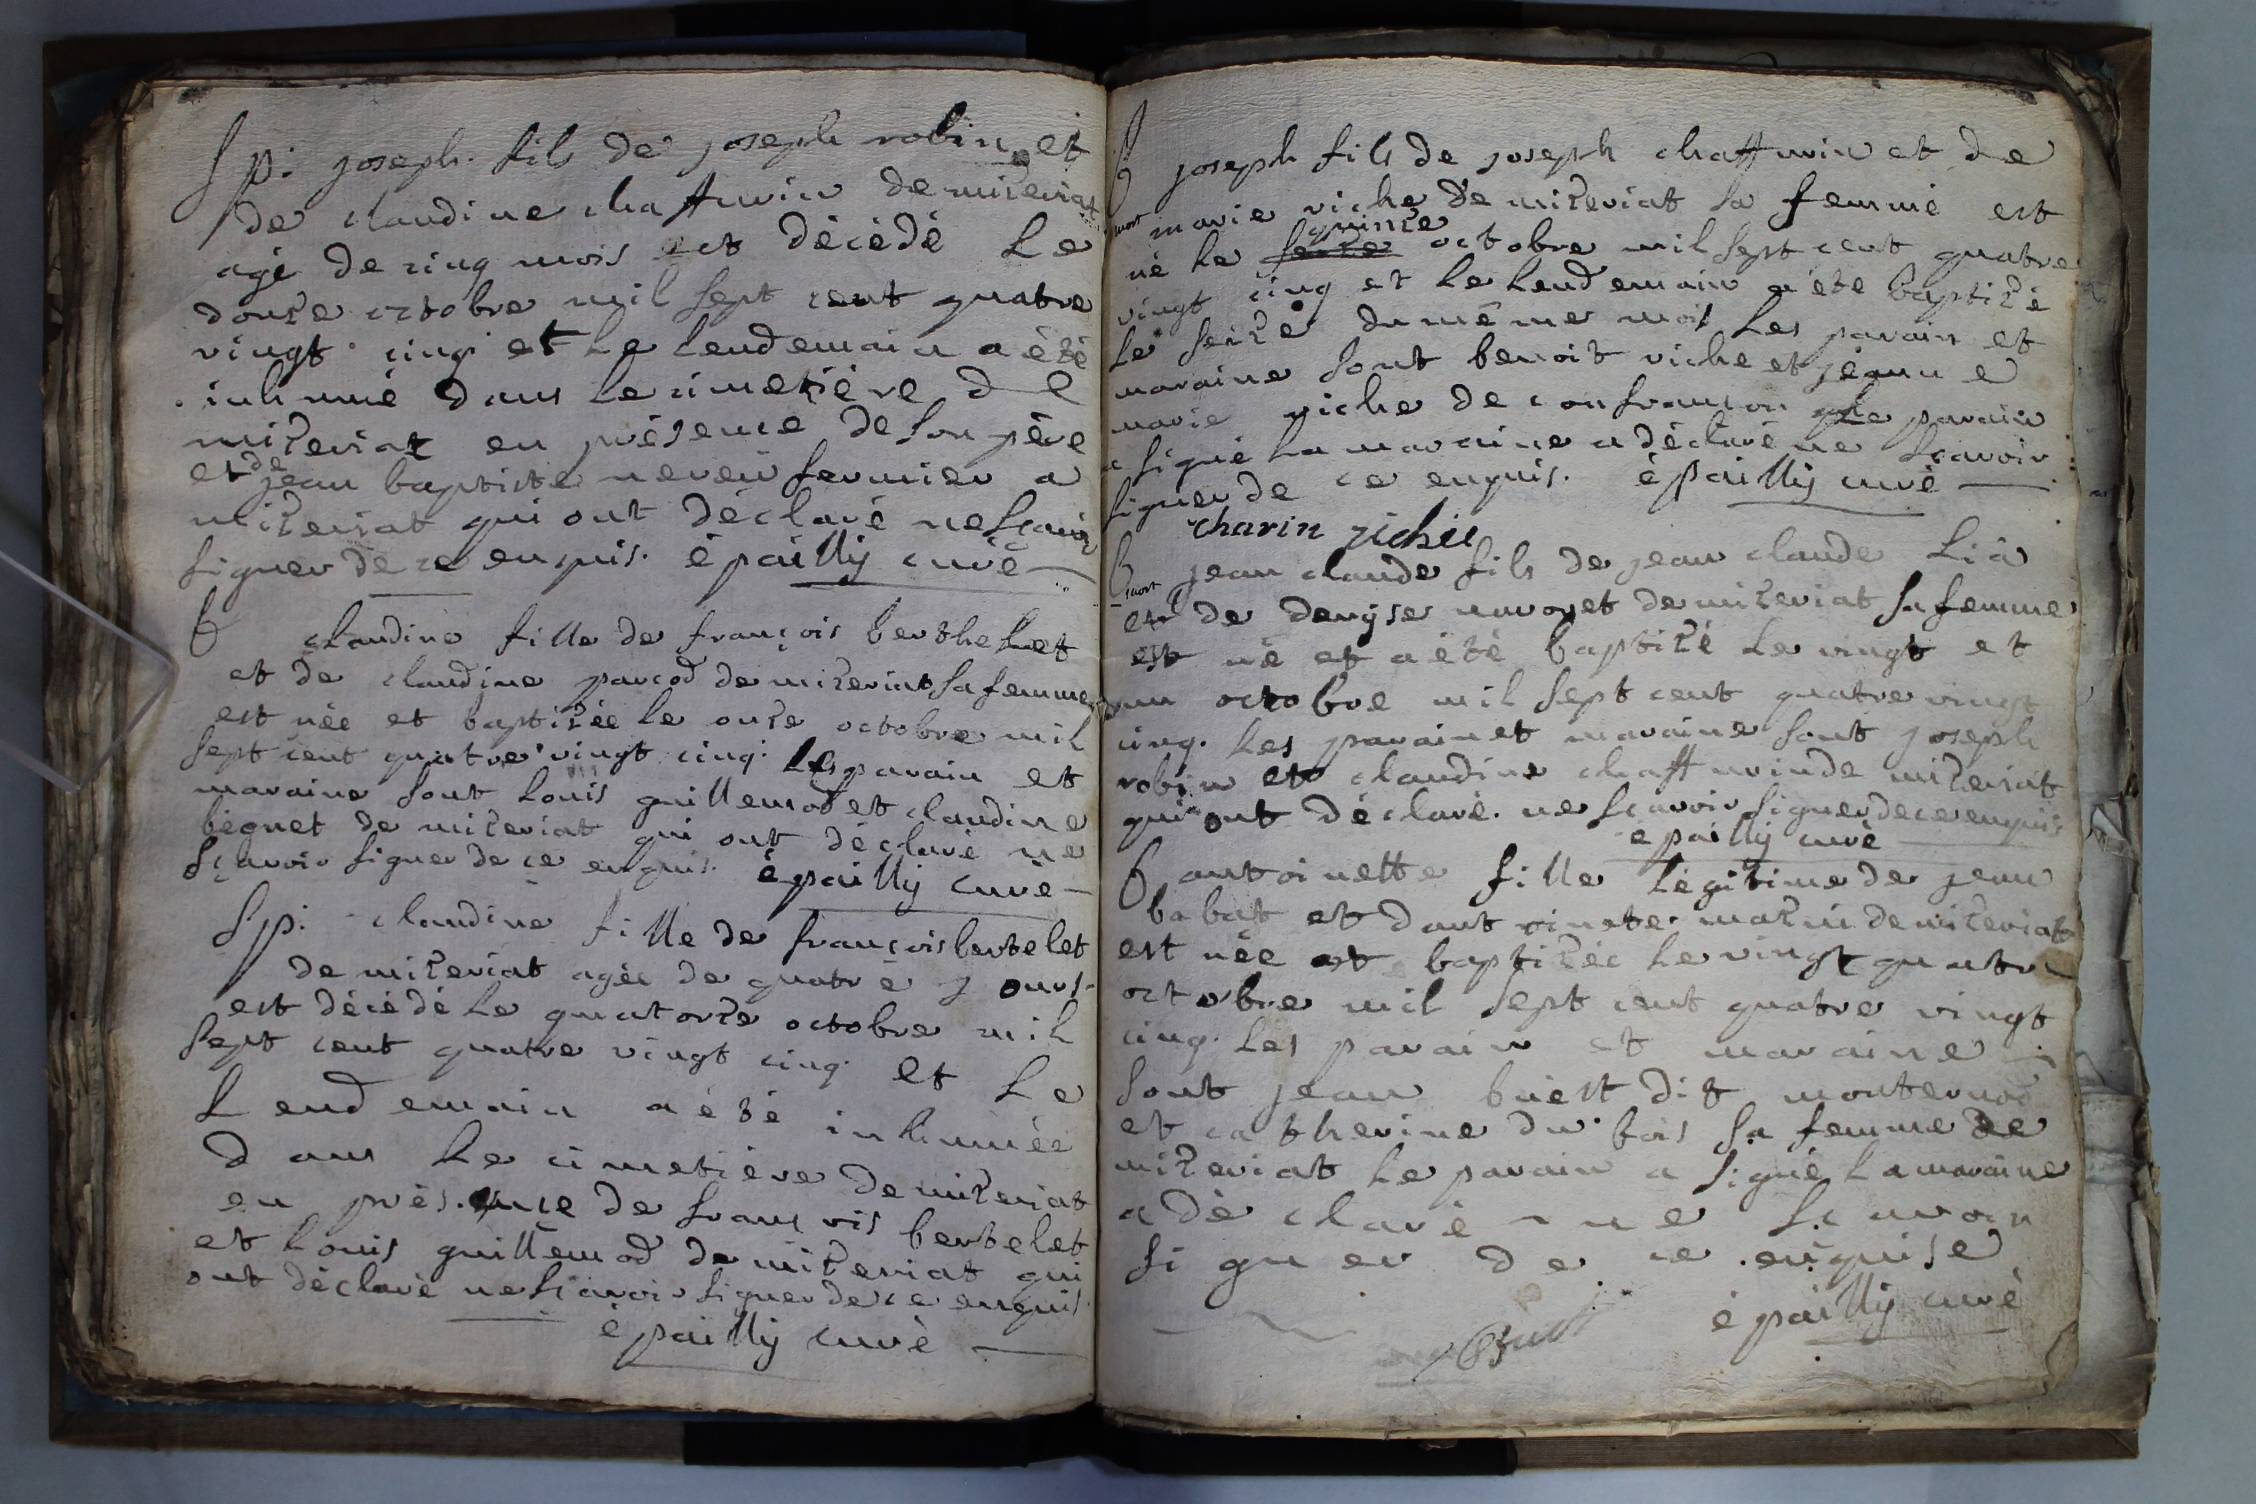 Sp. joseph. fils de joseph robin et
de claudine chaffurin de miseriat
agé de cinq mois est décédé le
douze octobre mil sept cent quatre
vingt cinq et le lendemain a été
inhumé dans le cimetiére de
miseriat en présence de son pére
et de jean baptiste neveu fermier a
miseriat qui ont déclaré ne sçavoir
signer de ce enquis. épailly curé
B claudine fille de françois berthelet
et de claudine parcod de miseriat sa femme
est née et baptizée le onze octobre mil
sept cent quatre vingt cinq. les parain et
maraine sont louis guillemod et claudine
béguet de miseriat qui ont déclaré ne
sçavoir signer de ce enquis. épailly curé
Sp. claudine fille de françois bertelet
de miseriat agée de quatre jours
est décédé le quatorze octobre mil
sept cent quatre vingt cinq. et le
lendemain a été inhumée
dans le cimetiére de miseriat
en présence de françois bertelet
et louis guillemod de miseriat qui
ont déclaré ne sçavoir signer de ce enquis
épailly curé
B joseph fils de joseph chaffurin et de
mort marie riche de miseriat sa femme est
quinze
né le seize octobre mil sept cent quatre
vingt cinq et le lendemain a été baptizé
le seize du méme mois les parain et
maraine sont benoit riche et jeanne
marie riche de confrançon le parain
a signé la maraine a déclaré ne sçavoir
signer de ce enquis. épailly curé
charin riche
B jean claude fils de jean claude
mort et de denyse navoret de miseriat sa femme
est né et a été baptizé le vingt et
un octobre mil sept cent quatre vingt
cinq. les parain et maraine sont joseph
robin et claudine chaffurin de miseriat
qui ont déclaré. ne sçavoir signer de ce enquis
épailly curé
B antoinette fille légitime de jean
babat et dantoinete. de miseriat
est née et baptizée le vingt quatre
octobre mil sept cent quatre vingt
cinq. les parain et maraine
sont jean buest dit monternod
et catherine du bois sa femme de
miseriat le parain a signé la maraine
a déclaré ne sçavoir
signer de ce enquise
épailly curé
Buest